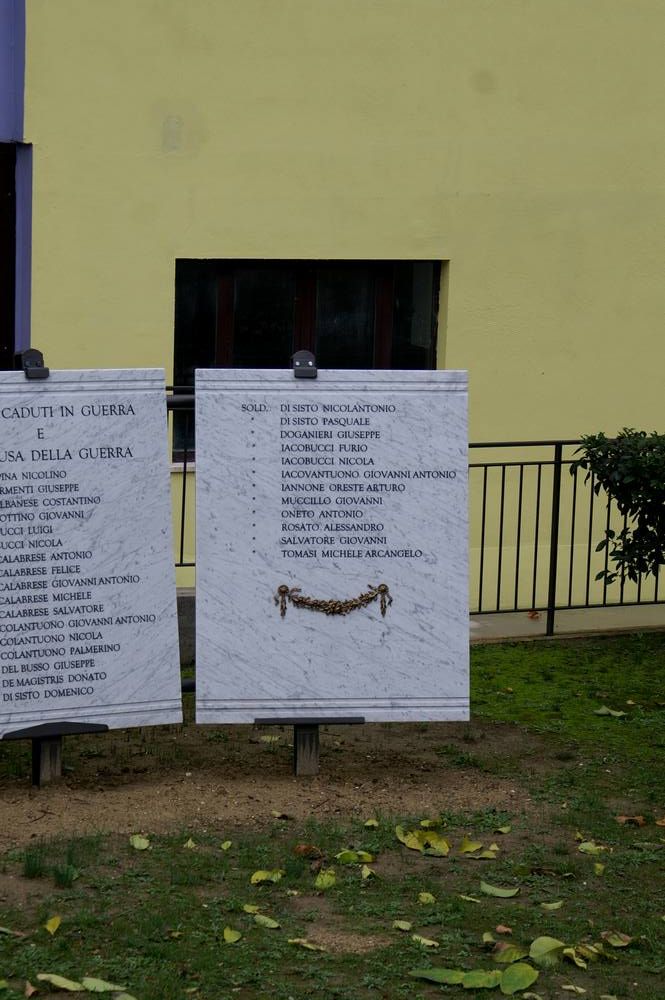 CADUTI IN GUERRA
E
USA DELLA GUERRA
PINA NICOLINO
RMENTI GIUSEPPE
LBANESE COSTANTINO
OTTINO GIOVANNI
UCCI LUIGI
UCCI NICOLA
CALABRESE ANTONIO
CALABRESE FELICE
CALABRESE GIOVANNI ANTONIO
CALABRESE MICHELE
CALABRESE SALVATORE
COLANTUONO GIOVANNI ANTONIO
COLANTUONO NICOLA
COLANTUONO PALMERINO
DEL BUSSO GIUSEPPE
DE MAGISTRIS DONATO
DI SISTO DOMENICO
SOLD. DI SISTO NICOLANTONIO
" DI SISTO PASQUALE
" DOGANIERI GIUSEPPE
" IACOBUCCI FURIO
" IACOBUCCI NICOLA
" IACOVANTUONO GIOVANNI ANTONIO
" IANNONE ORESTE ARTURO
" MUCCILLO GIOVANNI
" ONETO ANTONIO
" ROSATO ALESSANDRO
" SALVATORE GIOVANNI
" TOMASI MICHELE ARCANGELO